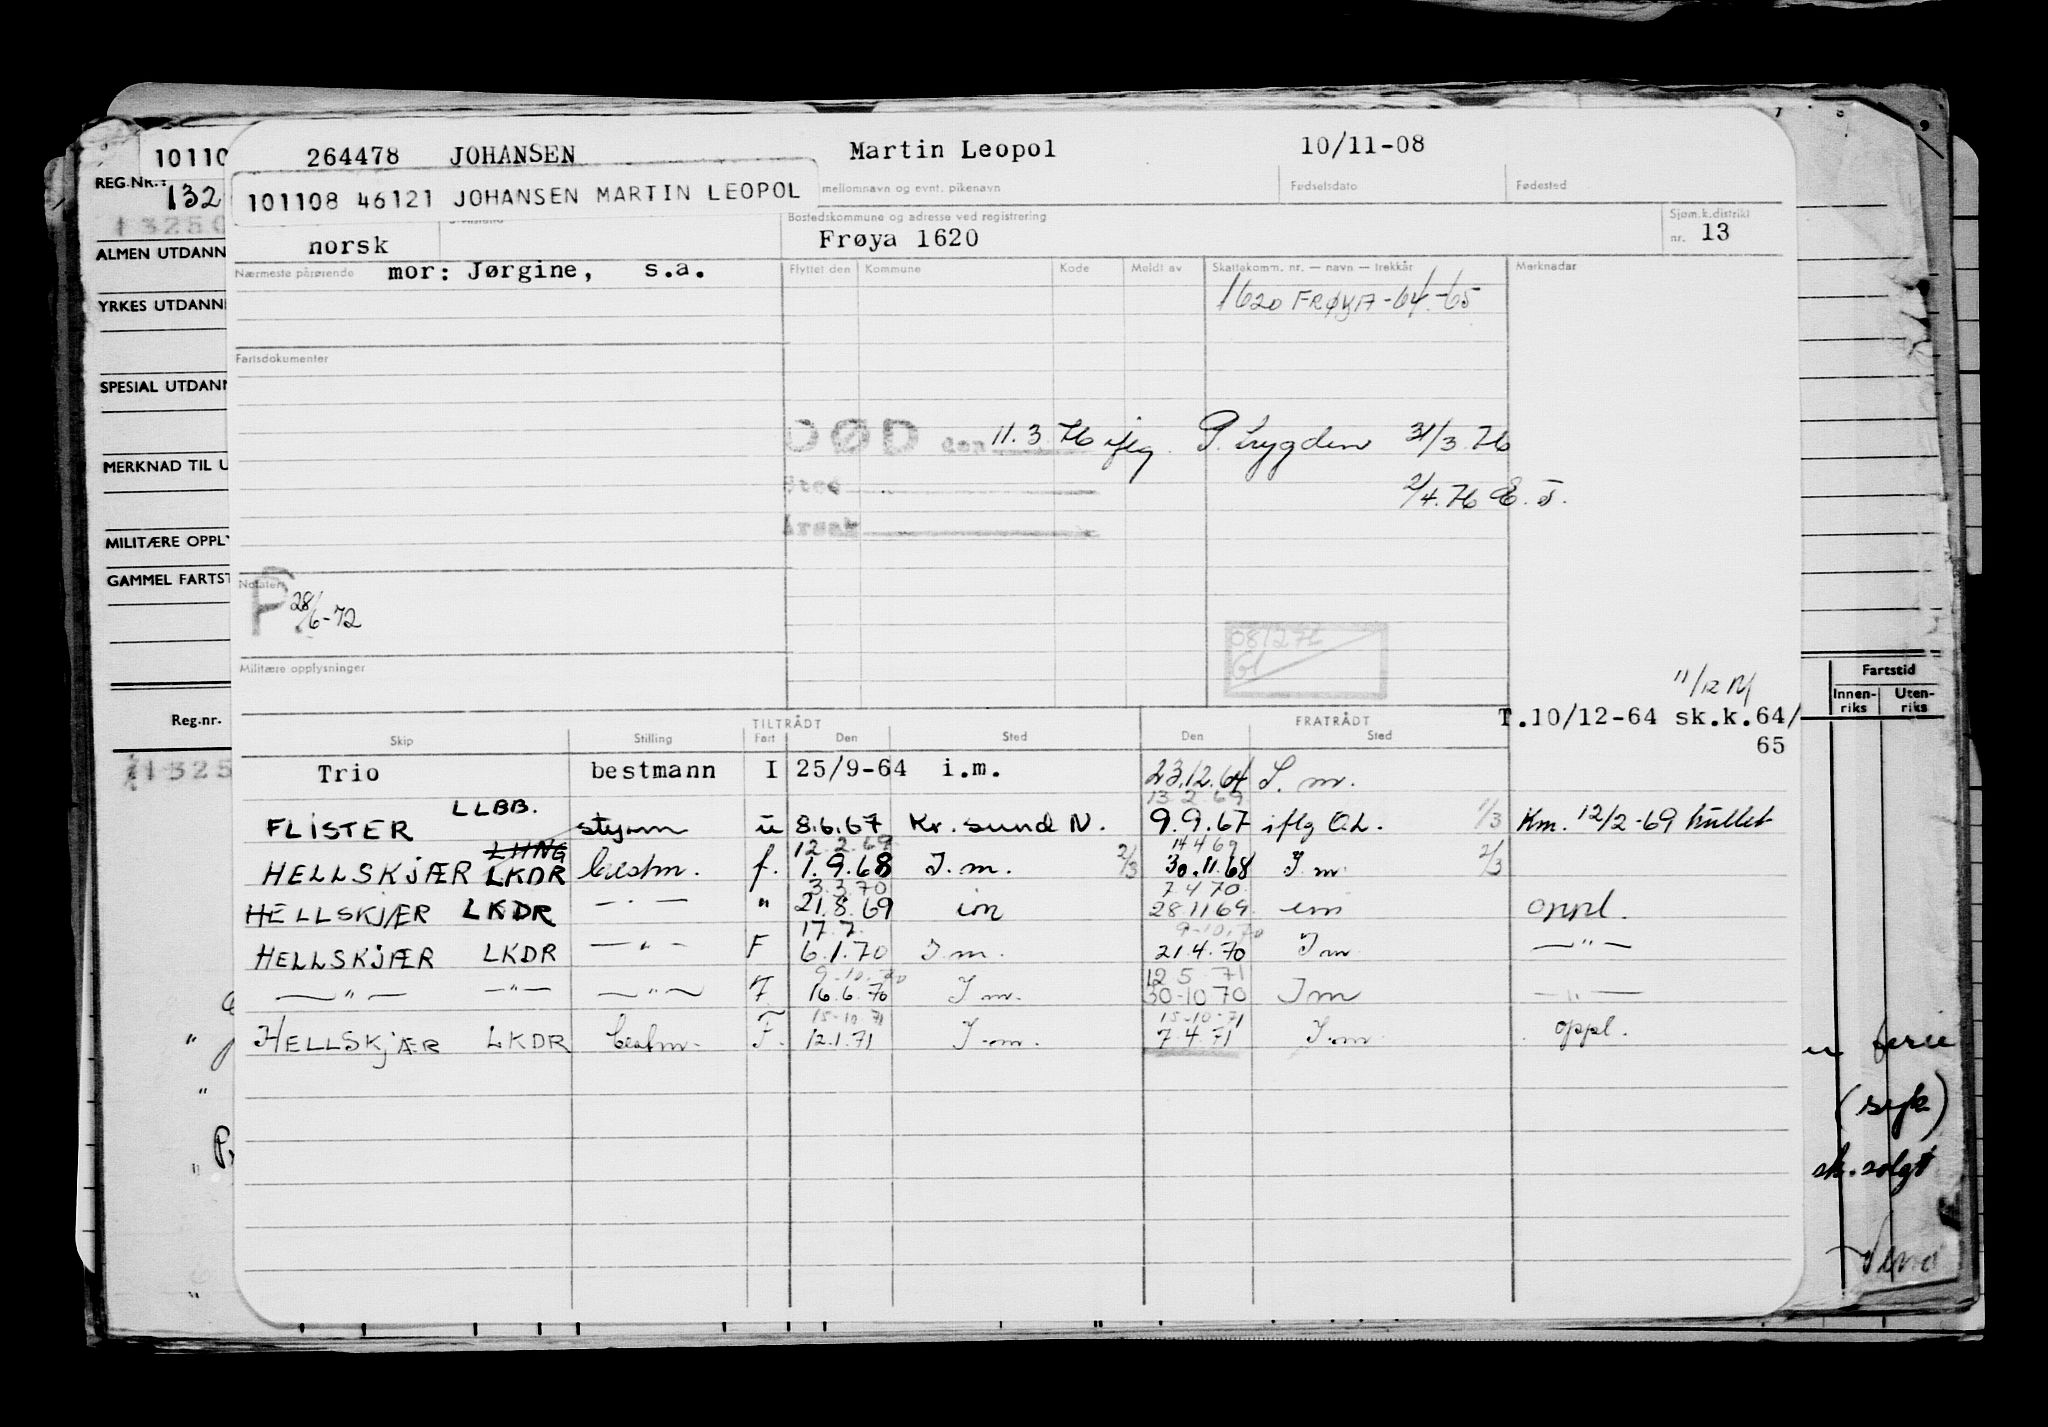 10110 264478 JOHANSEN Martin Leopol 10/11-08
REG.NR.: 132
101108 46121 JOHANSEN MARTIN LEOPOL
mellomnavn og evnt. pikenavn Fødselsdato Fødested
Bostedskommune og adresse ved registrering Sjøm.k.distrikt
norsk Frøya 1620 nr. 13
ALMEN UTDANN
Nærmeste pårørende mor: Jørgine, s.a. Flyttet den Kommune Kode Meldt av Skattekomm. nr. — navn — trekkår Merknader
1620 FRØYA -64-65
YRKES UTDANN
Fartsdokumenter
SPESIAL UTDANN
DØD den 11.3.76 iflg. P. trygden 31/3.76
MERKNAD TIL U
Sted 2/4.76 E.
Årsak
MILITÆRE OPPLY
GAMMEL FARTST
Notater
P. 28/6-72
Militære opplysninger
Fartstid
Innenriks Utenriks
11/12
Reg.nr.
TILTRÅDT FRATRÅDT T.10/12-64 sk.k.64/
Skip Stilling Fart Den Sted Den Sted 65
Trio bestmann I 25/9-64 i.m. 23.12.64 I.m.
13 2 69
FLISTER LLBB. styrm u 8.6.67 Kr.sund N. 9.9.67 iflg OL. 1/3 Km. 12/2-69
12.2.69 14 4 69
HELLSKJÆR LHNG LKDR bestm. f. 1.9.68 I.m. 2/3 30.11.68 I m 2/3
3.3.70 7 4 70
HELLSKJÆR LKDR — · — " 21.8.69 im 28 11 69 im oppl.
17.7. 9-10.70
HELLSKJÆR LKDR — " — F 6.1.70 I.m. 21.4.70 I m — " —
9-10.70 12 5 71
— " — — " — — " — F. 16.6.70 I m. 30-10 70 I m — " —
15-10.71 15-10-71
HELLSKJÆR LKDR bestm. F. 12.1.71 I.m. 7.4.71 I.m. oppl.
ferie
(syk)
sk. solgt